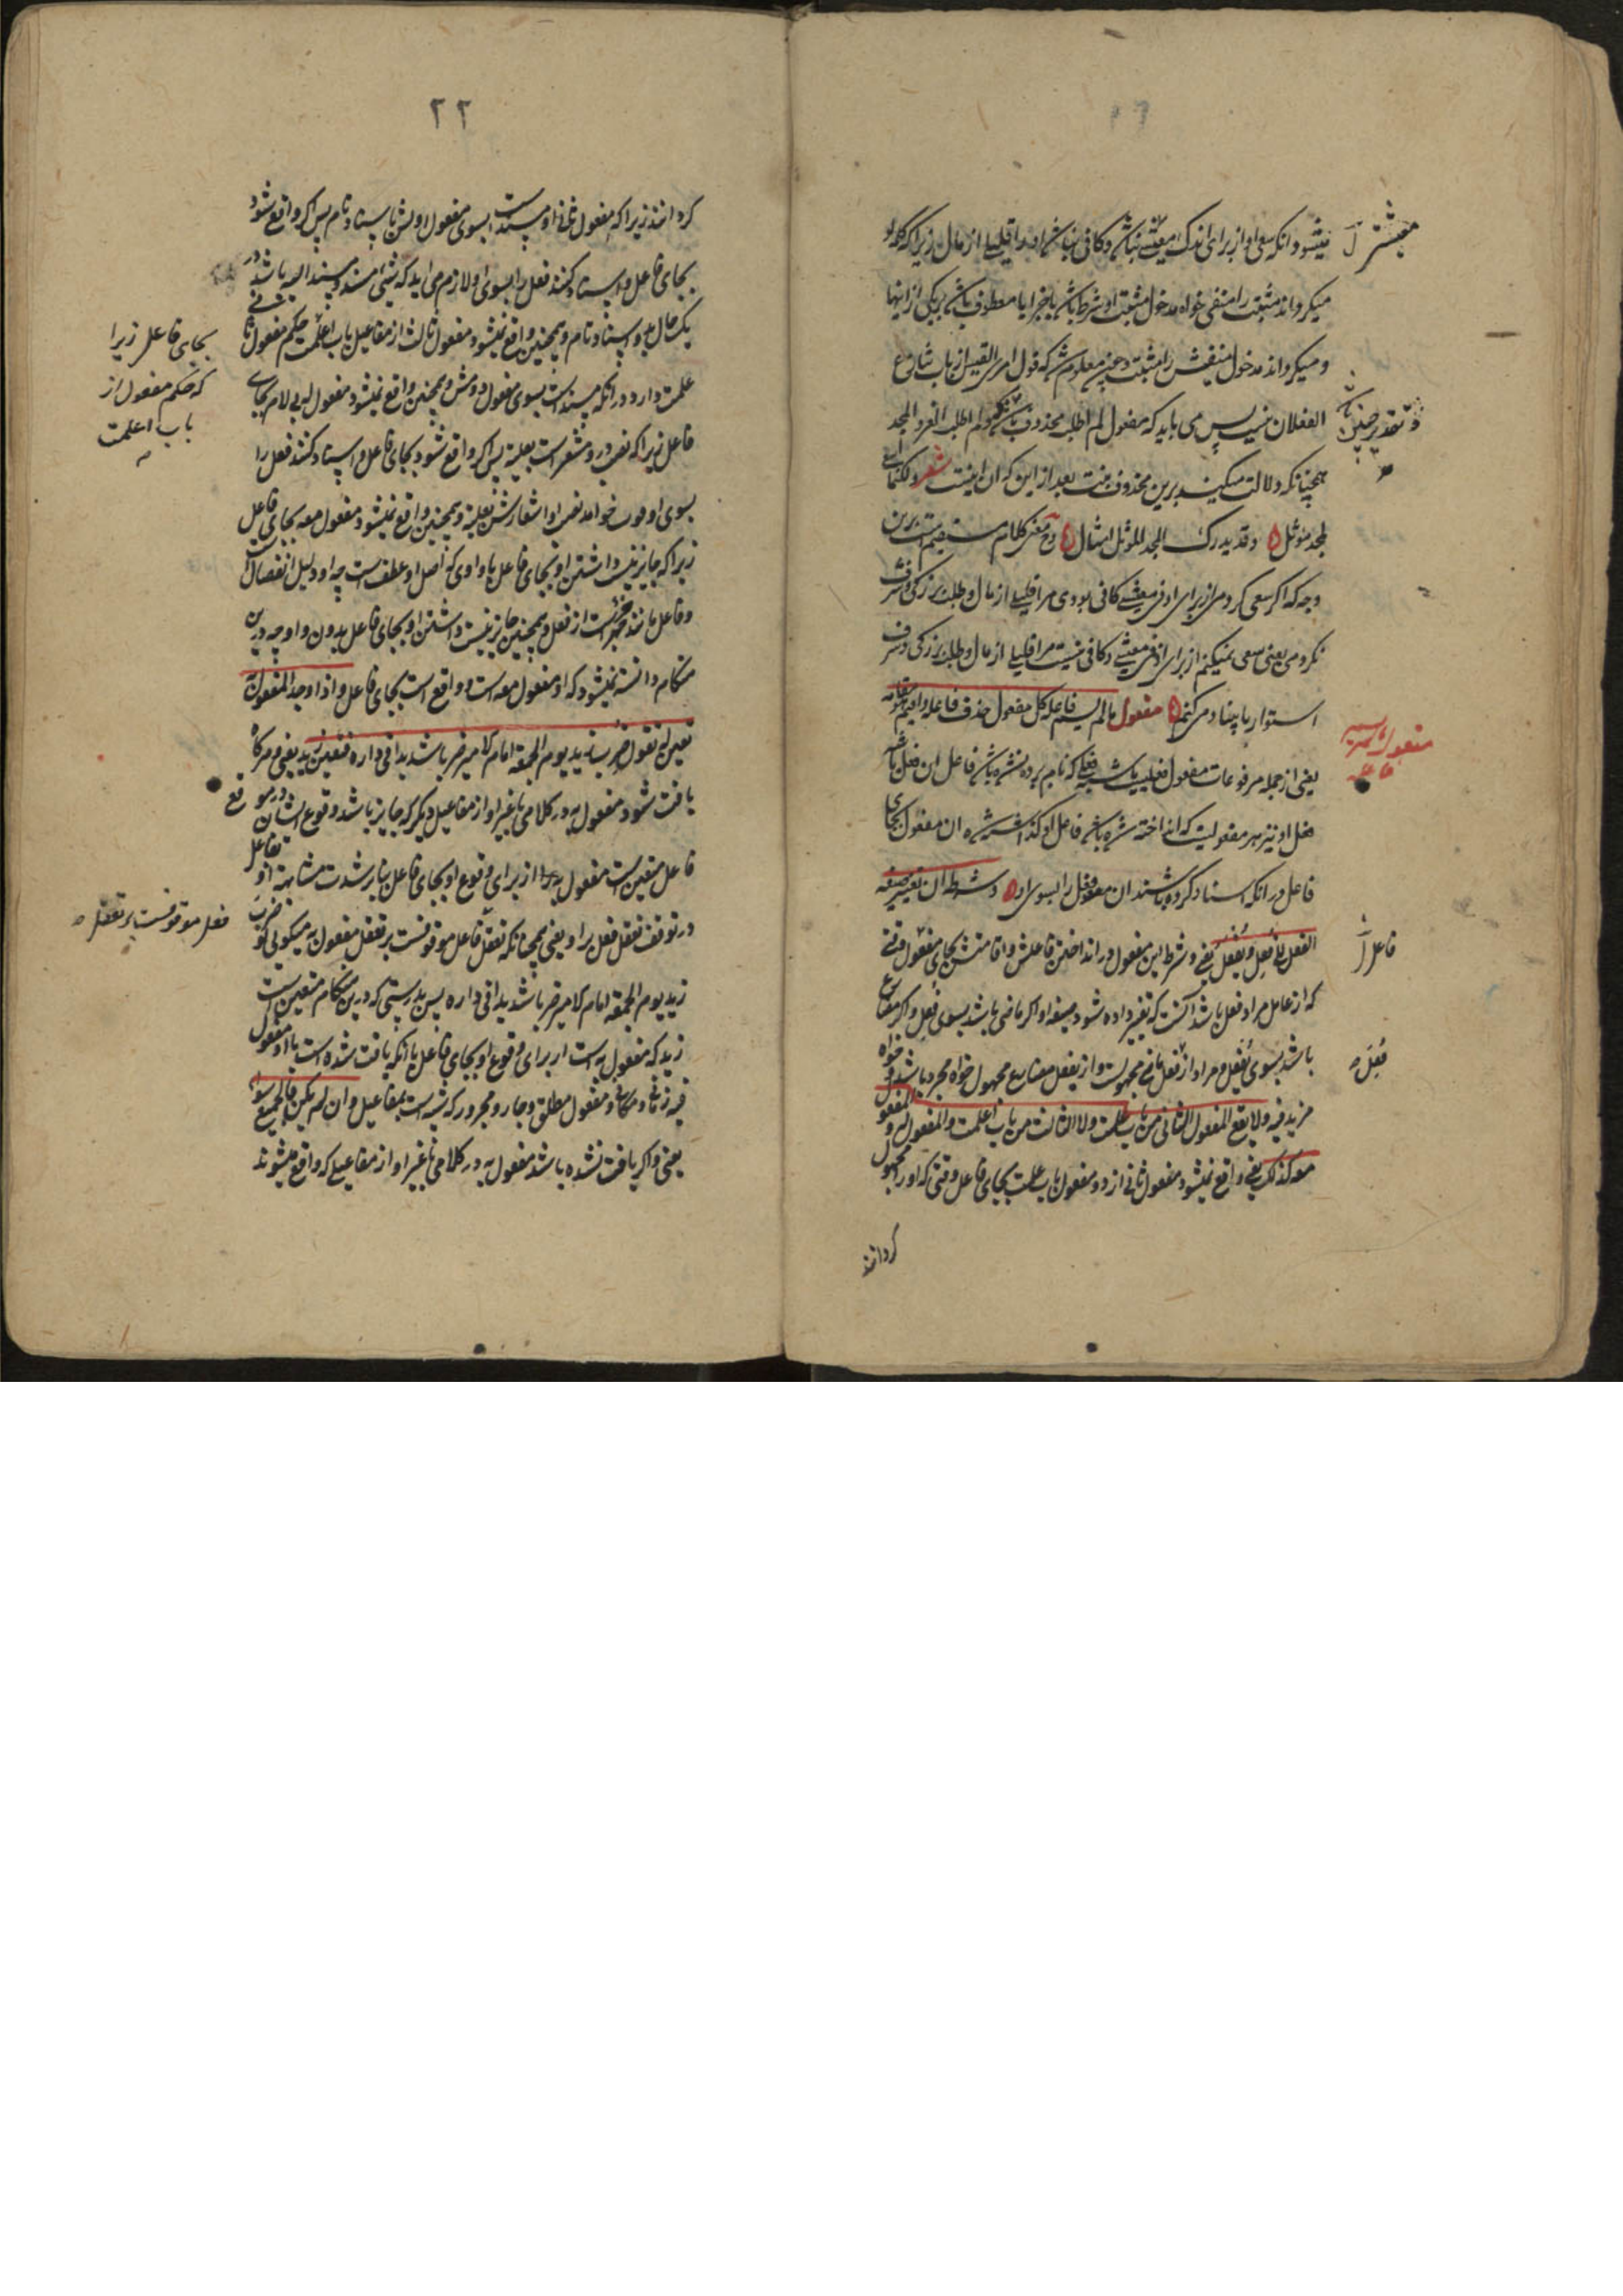 میشود انکه سعی او از برای اندک معیشتی نباشد و کافی نباشد او را قلیلی از مال زیرا که کلمه لو
میکرداند مثبت را منفی خواه مدخول مثبت او شرط باشد یا جزا یا معطوف باشد بر یکی از اینها
و میکرداند مدخول منفیش را مثبت و چنین معلوم شد که قول امرئ القیس از باب تنازع
الفعلان نیست پس می باید که مفعول لم اطلب محذوف باشد ولم اطلب العز والمجد
همچنانکه دلالت میکند برین محذوف بیت بعد از این که ان اینست شعر ولکنما اسعی
لمجد موثل وقد یدرک المجد الموثل امثالی و معنی کلام مستقیم است برین
وجه که اکر سعی کردمی از برای ادنی معیشتی کافی بودی مرا قلیلی از مال و طلب بزرکی و شرف
نکردمی یعنی سعی نمیکنم از برای ادنی معیشتی و کافی نیست مرا قلیلی از مال و طلب بزرکی و شرف
استوار با بنیاد می کنم مفعول ما لم یسم فاعله کل مفعول حذف فاعله واقیم هو مقامه
یعنی از جمله مرفوعات مفعول فعلیست یا شبه فعلی که نام برده نشده باشد فاعل ان فعل یا شبه
فعل او نیز هر مفعولیست که انداخته شده باشد فاعل او کذاشته شده ان مفعول بجای
فاعل در انکه اسناد کرده باشند ان فعل را بسوی او وشرطه ان تغییر صیغة
الفعل الی فعل ویفعل یعنی و شرط این مفعول در انداختن فاعلش و اقامتش بجای مفعول وقتی
که از عامل مراد فعل باشد انست که تغییر داده شود صیغه او اکر ماضی باشد بسوی فعل و اکر مضارع
باشد بسوی یفعل و مراد از فعل ماضی مجهولست و از یفعل مضارع مجهول خواه مجرد باشد و خواه
مزید فیه ولا یقع المفعول الثانی من باب علمت ولا الثالث من باب اعلمت والمفعول له والمفعول
معه کذلک یعنی واقع نمیشود مفعول ثانی از دو مفعول باب علمت بجای فاعل وقتی که او را مجهول
کردانند
مفعول ما لم یسم فاعله
فاعل
فعل
۲۲
کردانند زیرا که مفعول ثانی او مسندست بسوی مفعول اولش باسناد تام پس اکر واقع شود
بجای فاعل و اسناد کنند فعل را بسوی او لازم می اید که شیئی مسند و مسند الیه باشد در
یک حال بدو اسناد تام و همچنین واقع نمیشود مفعول ثالث از مفاعیل باب اعلمت حکم مفعول ثانی
علمت دارد در انکه مسند است بسوی مفعول دومش و همچنین واقع نمیشود مفعول له بی لام بجای
فاعل زیرا که نصب در و مشعر است بعلیت پس اکر واقع شود بجای فاعل و اسناد کنند فعل را
بسوی او فوت خواهد نصب او اشعارش بعلیة و همچنین واقع نمیشود مفعول معه بجای فاعل
زیرا که جایز نیست داشتن او بجای فاعل با واوی که اصل او عطف است چه او دلیل انفصال است
و فاعل مانند جزئیست از فعل و همچنین جایز نیست داشتن او بجای فاعل بدون واو چه درین
هنکام دانسته نمیشود که او مفعول معه است و واقع است بجای فاعل واذا وجد المفعول به
تعین له تقول ضرب زید یوم الجمعة امام الامیر ضربا شدیدا فی داره فتعین زید یعنی و هرکاه
یافت شود مفعول به در کلامی با غیر او از مفاعیل دیکر که جایز باشد وقوع ایشان در موقع
فاعل متعین است مفعول به از برای وقوع او بجای فاعل بنابر شدت مشابهة او بفاعل
در توقف تعقل فعل برا و یعنی همچنانکه تعقل فاعل موقوفست بر تعقل مفعول به میکویی تو ضرب
زید یوم الجمعة امام الامیر ضربا شدیدا فی داره پس بدرستی که درین هنکام متعین است
زید که مفعول به است از برای وقوع او بجای فاعل با انکه یافت شده است با او مفعول
فیه زمانی و مکانی و مفعول مطلق و جار و مجرور که شبیه است بمفاعیل وان لم یکن فالجمیع سواء
یعنی و اکر یافت نشده باشد مفعول به در کلامی با غیر او از مفاعیلی که واقع میشوند
بجای فاعل زیرا
که حکم مفعول از
باب اعلمت
فعل موقوفست بر تعقل